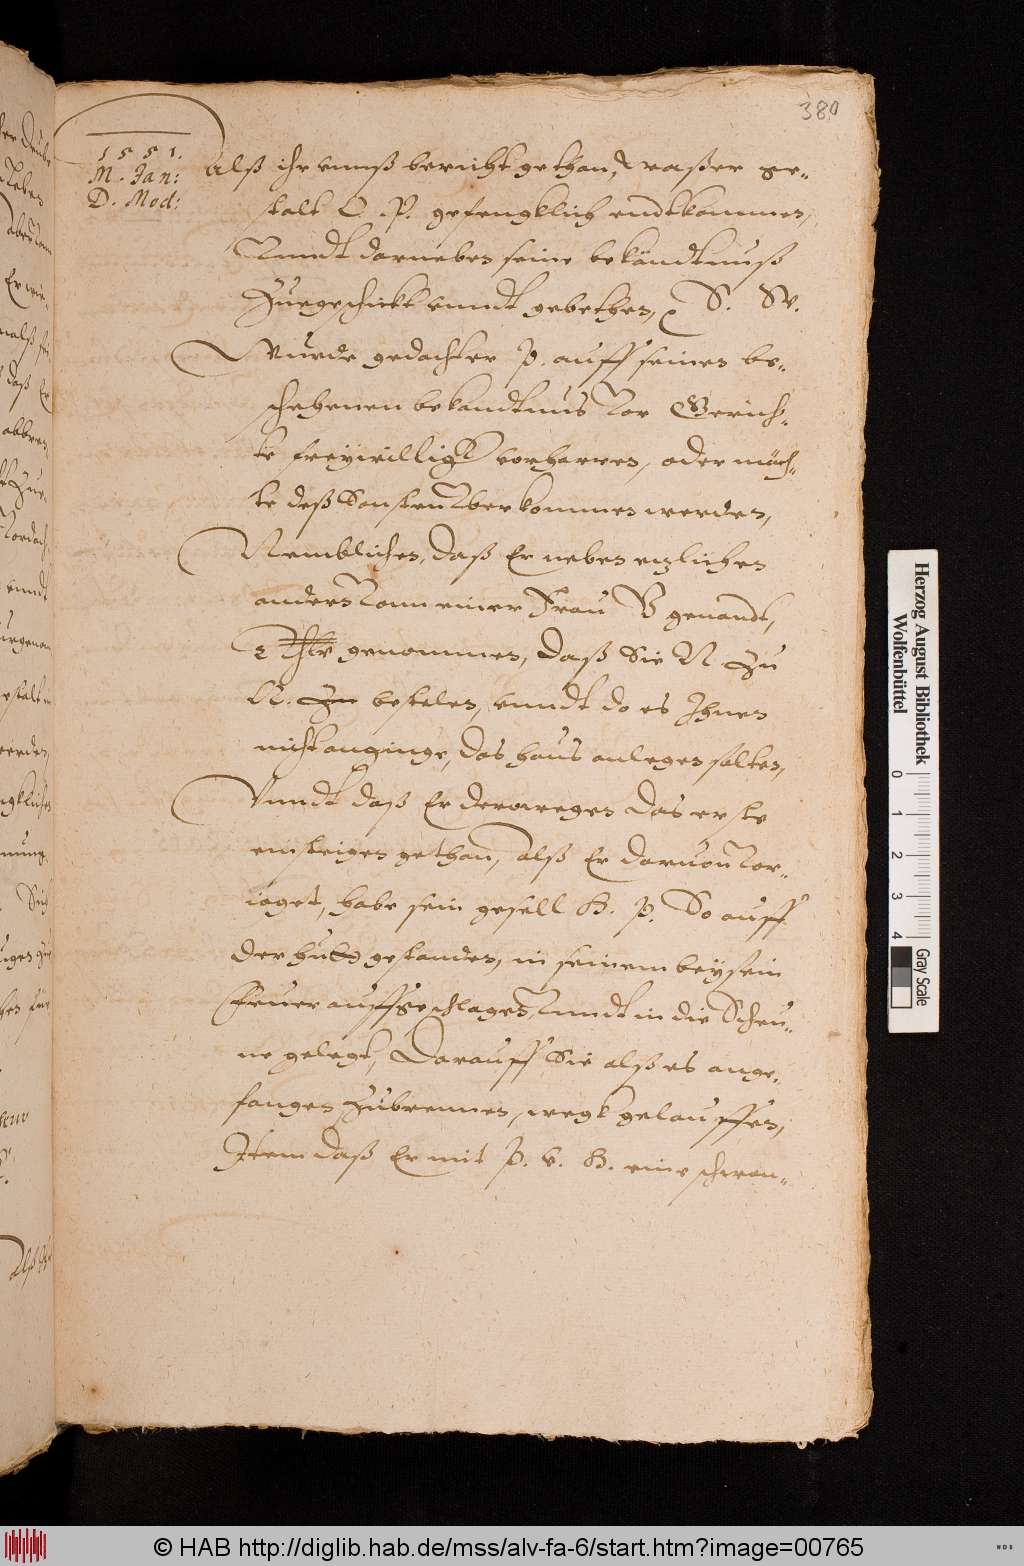 380
1551.
M. Jan:
D. Mod:
Alß ihr vnnß bericht gethan, waßer ge-
stalt C. P. gefengklich endtkommen,
Vnndt darneben seine bekändtnuß
Zuegeschickt vnndt gebethen, S. W.
Wurde gedachter P. auff seinen be-
schehenen bekandtnus Vor Gerich-
te freywillig vorharren, oder möch-
te deß Sonsten Vberkommen werden,
Nemblichen, daß Er neben etzlichen
andern Vonn einer Frau B genandt,
genommen, daß Sie N zu
N. bestelen, vnndt do es Ihnen
nicht anginge, das hauß anlegen solten,
Vnndt daß Er derowegen das erste
einsteigen gethan, alß Er daruon Vor-
iaget, habe sein gesell H. P. So auff
der hutt gestanden, in seinem beysein
Feuer auffgeschlagen, Vnndt in die Scheu-
ne gelegt, Darauff Sie alß es ange-
fangen Zubrennen, wegk gelauffen,
Item daß Er mit P. v. H. eine schwan-
Herzog August Bibliothek
Wolfenbüttel
0 1 2 3 4
Gray Scale
© HAB http://diglib.hab.de/mss/alv-fa-6/start.htm?image=00765